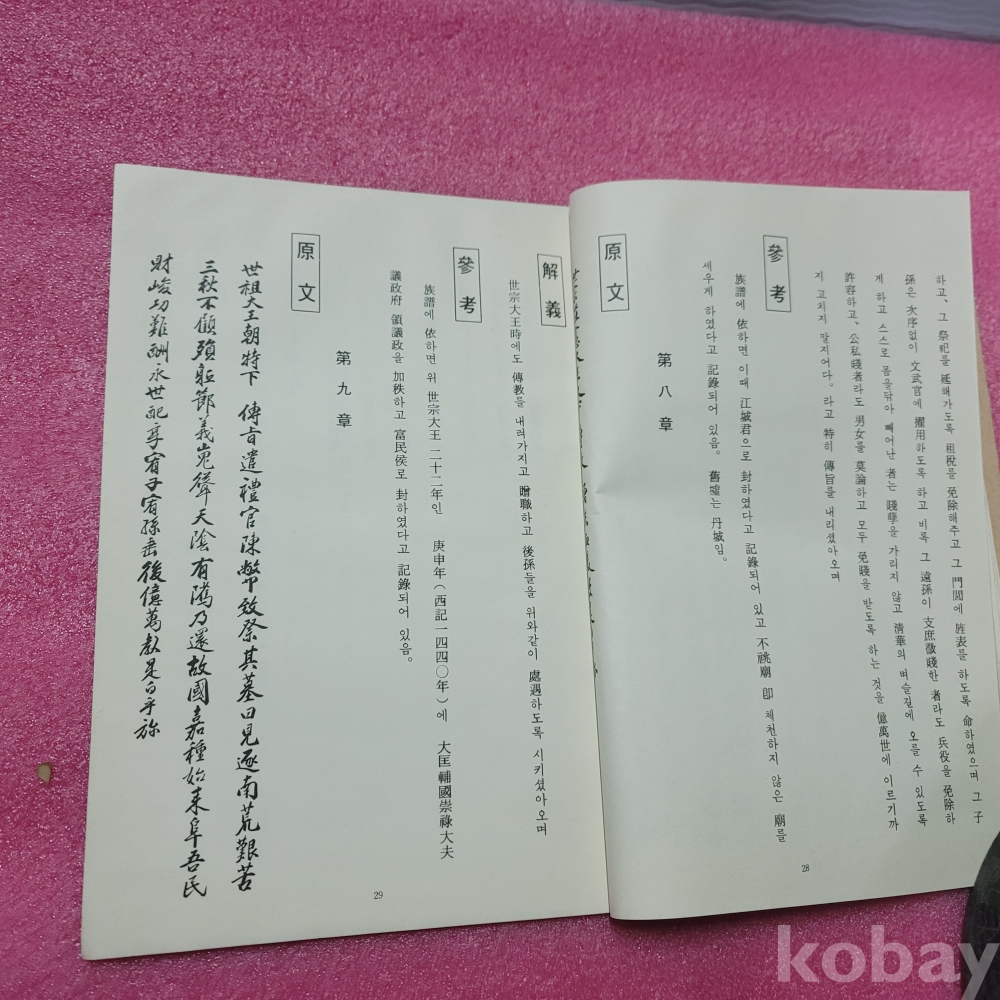 하고、그 祭祀를 延해가도록 租稅를 免除해주고 그 門閭에 旌表를 하도록 命하였으며 그 子
孫은 次序없이 文武官에 擢用하도록 하고 비록 그 遠孫이 支庶微賤한 者라도 兵役을 免除하
게 하고 스스로 몸을닦아 빼어난 者는 賤孽을 가리지 않고 清華의 벼슬길에 오를 수 있도록
許容하고、公私賤者라도 男女를 莫論하고 모두 免賤을 받도록 하는 것을 億萬世에 이르기까
지 고치지 말지어다。라고 特히 傳旨를 내리셨아오며
參考
族譜에 依하면 이때 江城君으로 封하였다고 記錄되어 있고 不祧廟 即 체천하지 않은 廟를
세우게 하였다고 記錄되어 있음。舊墟는 丹城임。
第八章
原文
28
解義
世宗大王時에도 傳教를 내려가지고 贈職하고 後孫들을 위와같이 處遇하도록 시키셨아오며
參考
族譜에 依하면 위 世宗大王 二十二年인 庚申年(西記一四四〇年)에 大匡輔國崇祿大夫
議政府 領議政을 加秩하고 富民侯로 封하였다고 記錄되어 있음。
第九章
原文
世祖大王朝特下 傳旨遣禮官陳幣致祭其墓曰見逐南荒艱苦
三秋不顧殞軀節義嵬聲天陰有隲乃還故國嘉種始来阜吾民
財峻功難酬永世祀享宥子宥孫垂後億萬教是白乎旀
29
kobay